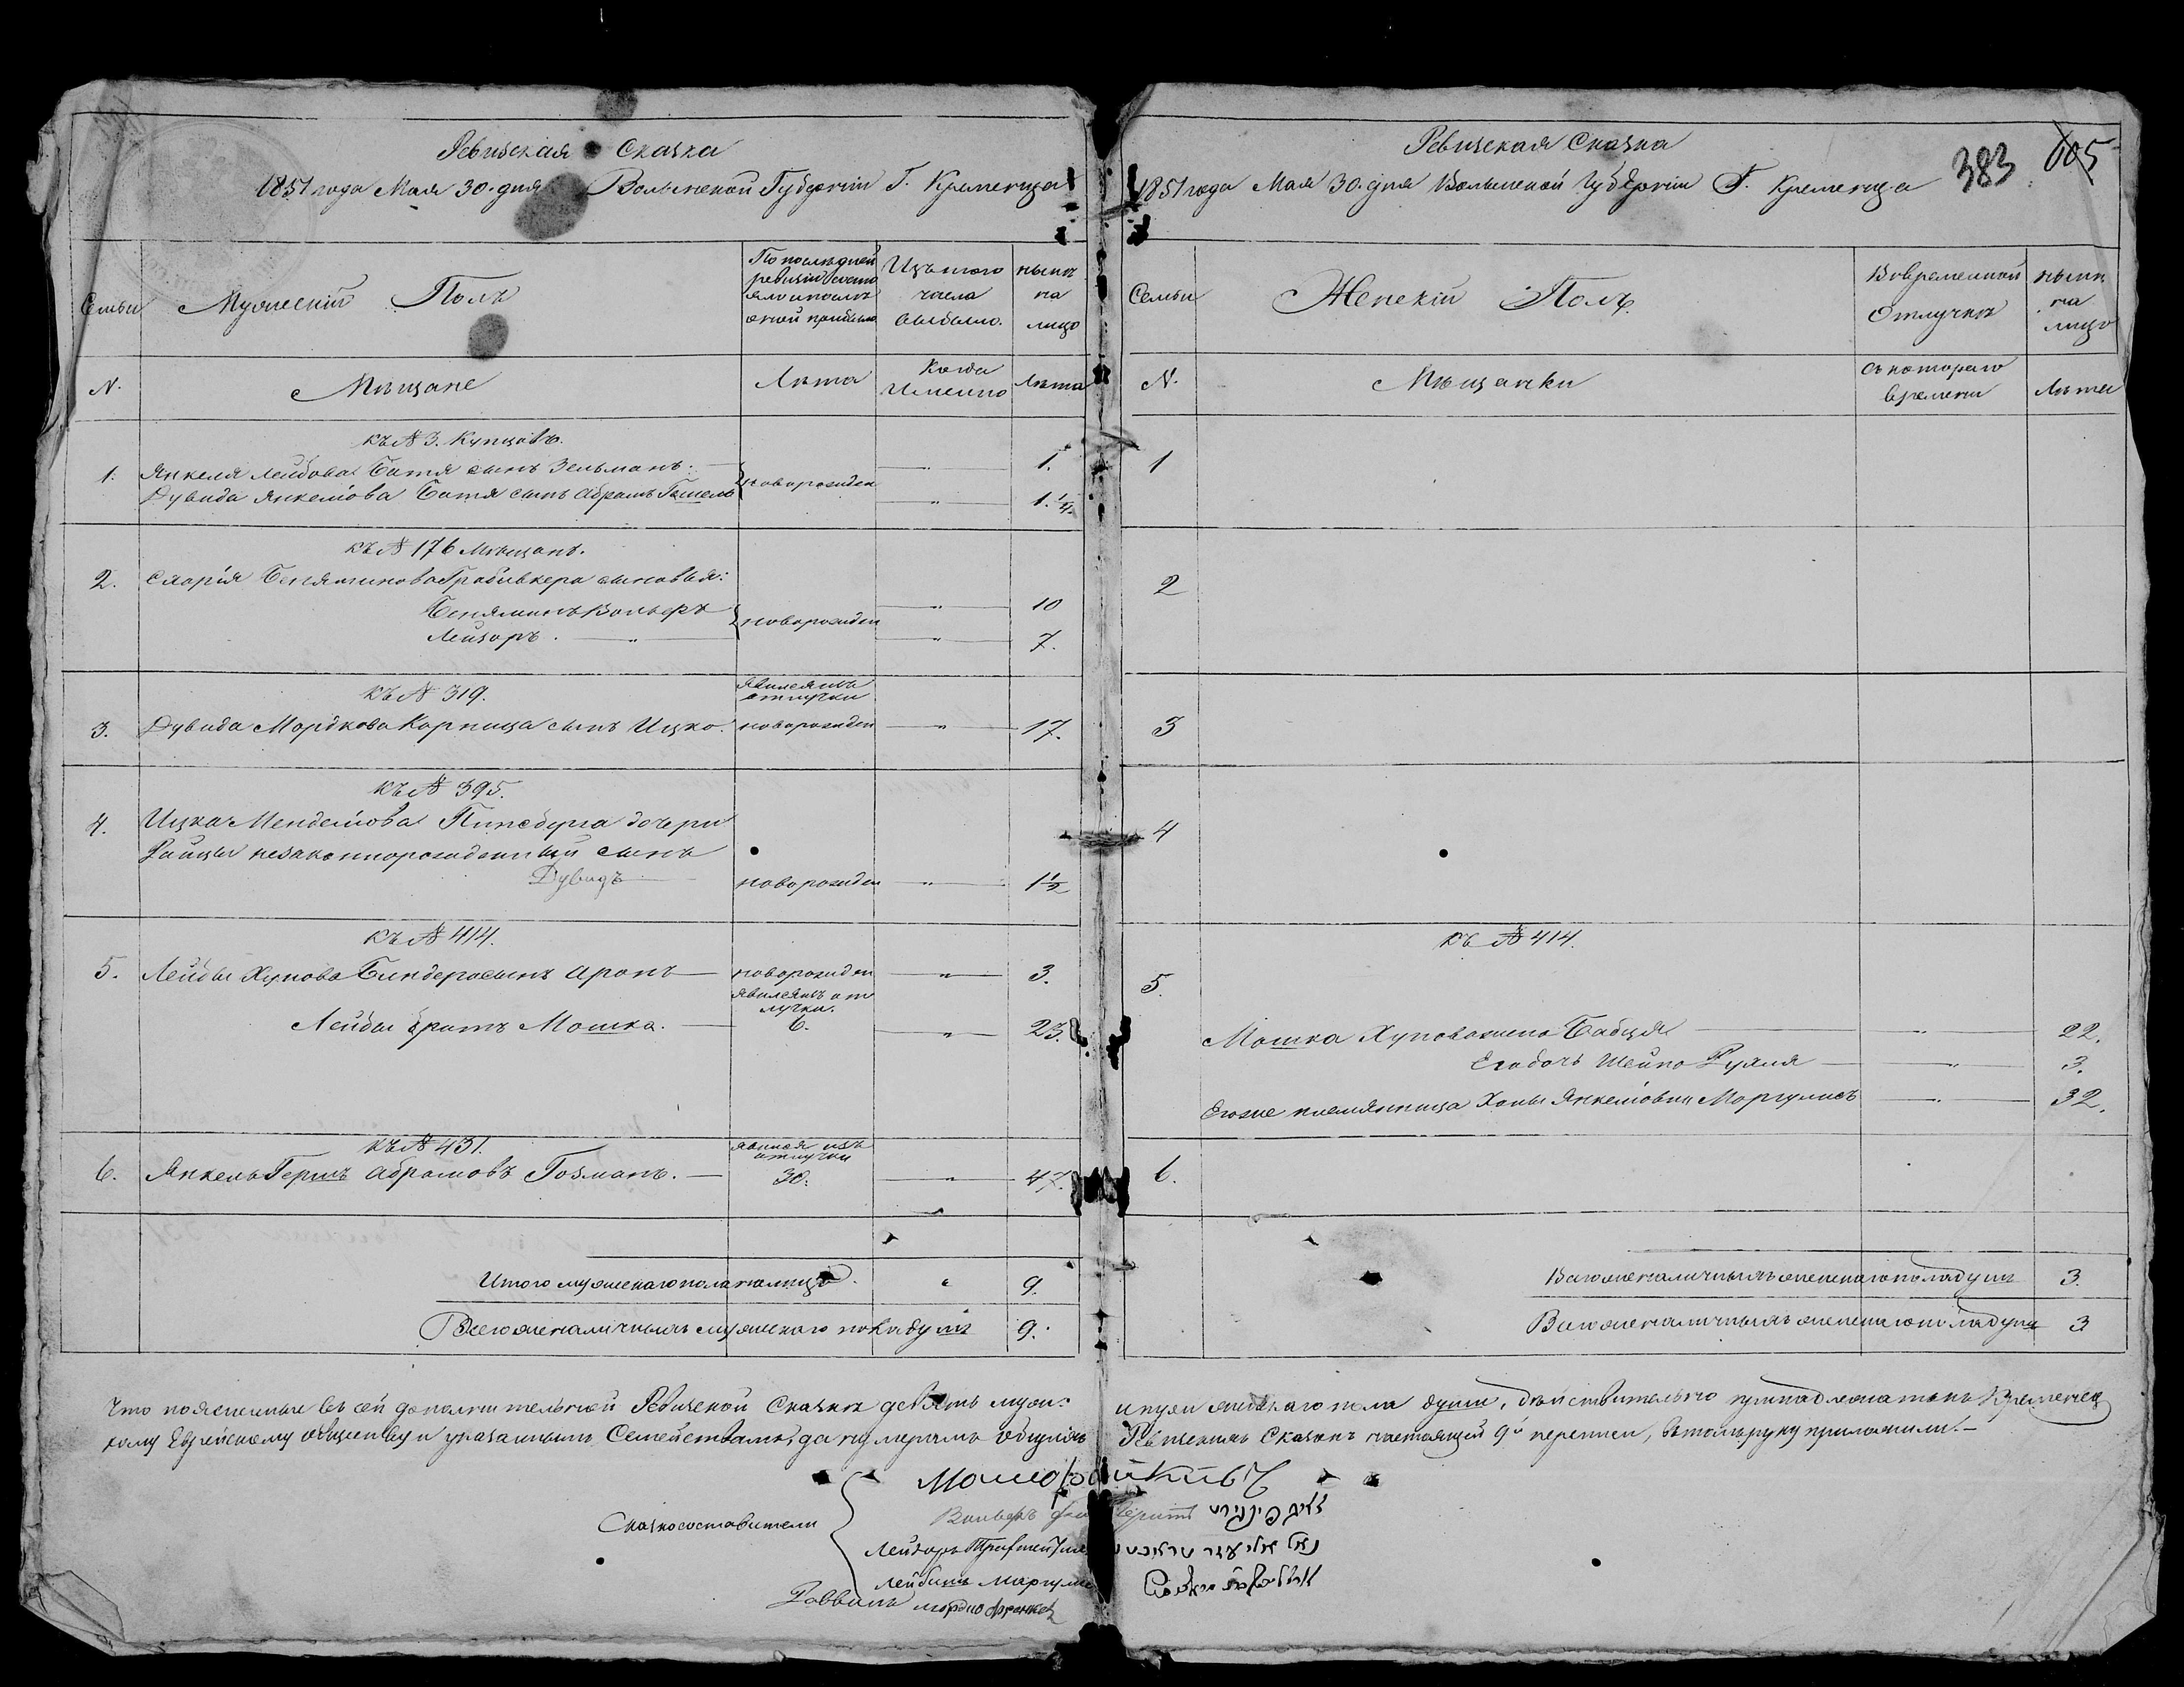 Ревизская Сказка
1851 года Мая 30. дня Волынской Губерніи Г. Кременца
Семьи
Мужескій Полъ
По последней ревизіи состояло и после оной прибыло
Изъ того числа выбыло.
ныне на лицо
N.
Мѣщане
Лѣта
Когда Именно
Лѣта
къ № 3. Купцовъ.
1. Янкеля Лейбова Батя сынъ Зельманъ. — 1.
Дувида Янкелiова Батя сынъ Абрамъ Гошель новорожден — " — 1. 1/4.
къ № 176 мѣщанъ.
2. Схарія Беняминова Грабивкера сыновья:
Беняминъ Вольфъ — " — 10
новорожден
Лейзоръ. — " — " — 7.
къ № 319.
явился изъ отлучки
3. Дувида Мордкова Корница сынъ Ицко. новорожден — " — 17.
къ № 395.
4. Ицка Менделiова Пинсбурга дочери
Райцы незаконнорожденный сынъ
Дувидъ — новорожден — " — 1 1/2
къ № 414.
5. Лейбы Хунова Биндера сынъ Аронъ — новорожден — " — 3.
явился изъ отлучки.
Лейбы братъ Мошка. — 6. — " — 23.
къ № 431.
явился изъ отлучки
6. Янкель Гершъ Абрамовъ Гозманъ. — 30. — " — 47.
Итого мужескаго пола на лицо. " 9.
Всего же наличныхъ мужескаго пола душъ 9.
Ревизская Сказка
1851 года Мая 30. дня Волынской Губерніи Г. Кременца
383 605
Семьи
Женскій Полъ.
Во временной Отлучкѣ
нынѣ на лицо
N.
Мѣщанки
съ котораго времени
Лѣта
1
2
3
4
къ № 414.
5.
Мошка Хунова жена Бабця — " — 22.
Его дочь Шейно Рухля — " — 3.
Его же племянница Хоны Янкелiовны Моргулисъ — " — 32.
6.
Всего же наличныхъ женскаго пола душъ 3.
Всего же наличныхъ женскаго пола душъ 3
Что поясненные въ сей дополнительной Ревизской Сказкѣ девять муж: и три женскаго пола души, действительно принадлежатъ къ Кременец
кому Еврейскому обществу и указаннымъ Семействамъ, да нумерамъ общихъ Ревизскихъ Сказокъ настоящей 9й переписи, въ томъ руку приложили. —
Сказкосоставители
Вольфъ
Лейзоръ
Лейбишъ Маргулис
Раввинъ Мордко